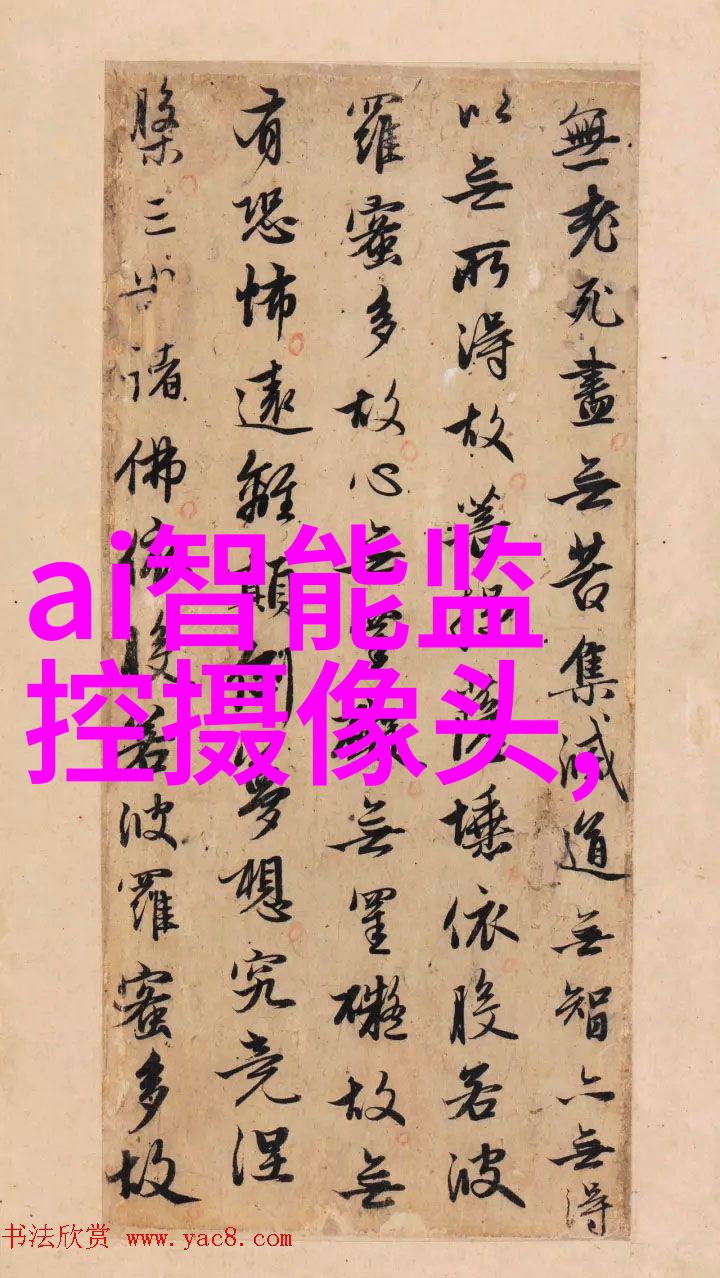 無老死盡無苦集滅道無智亦無得
以無所得故菩提薩埵依般若波
羅蜜多故心無罣礙無罣礙故無
有恐怖遠離顛倒夢想究竟涅
槃三世諸佛依般若波羅蜜多故
ai智能监
控摄像头,
书法欣赏 www.yac8.com